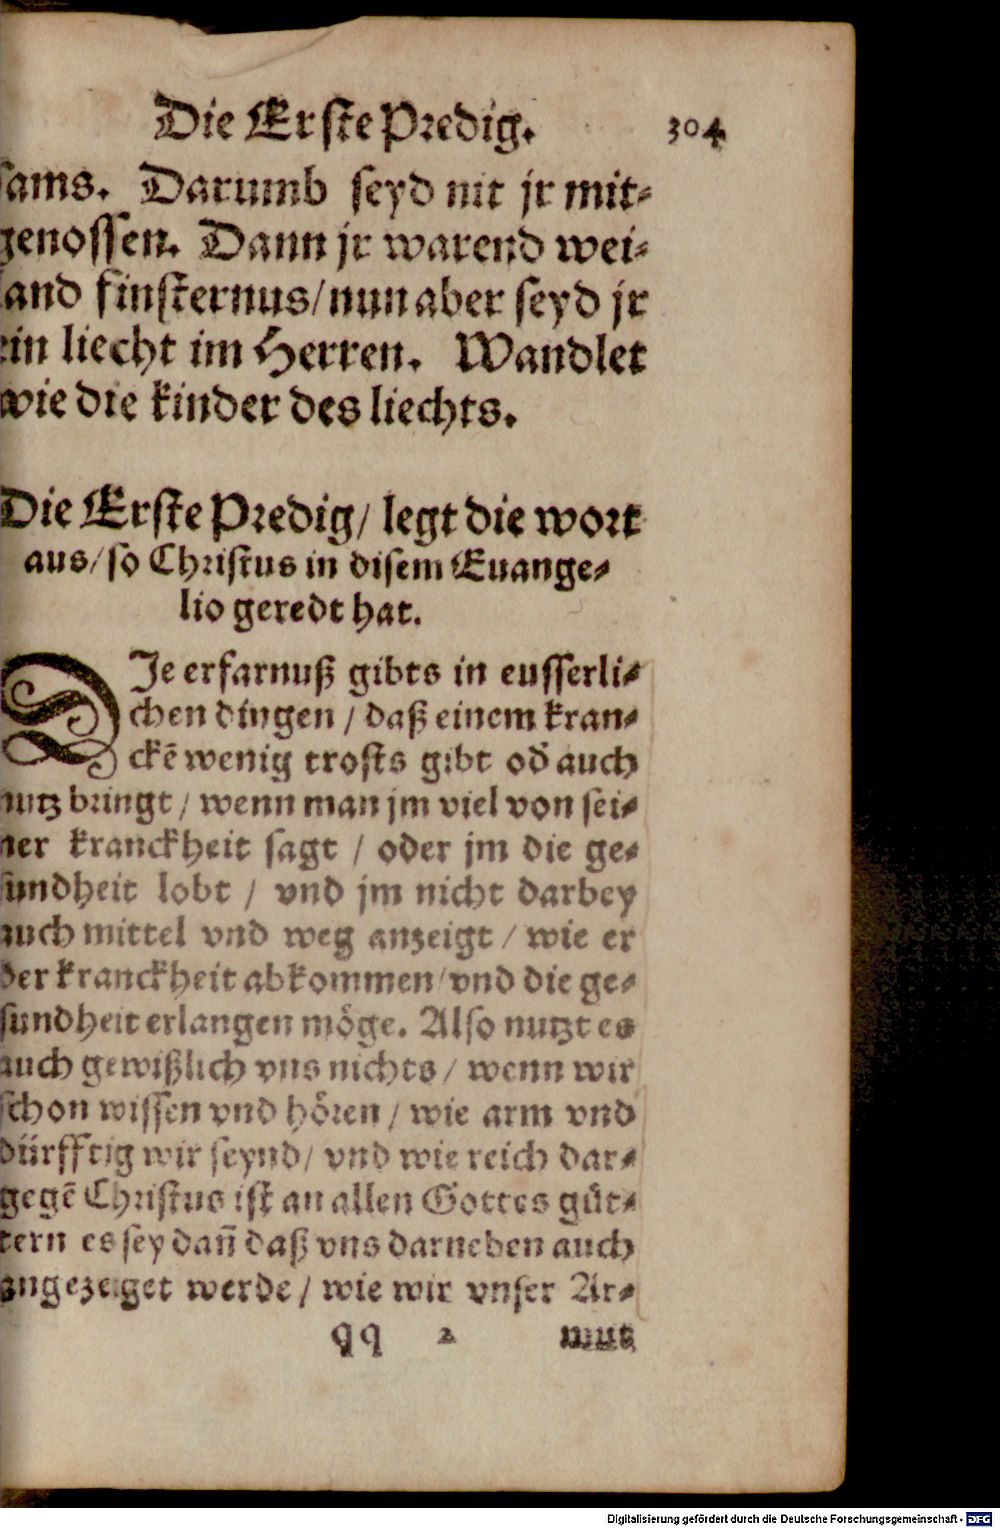 Die Erste Predig. 304
sams. Darumb seyd nit jr mit-
genossen. Dann jr warend wei-
land finsternus/nun aber seyd jr
ein liecht im Herren. Wandlet
wie die kinder des liechts.
Die Erste Predig/ legt die wort
aus/so Christus in disem Euange-
lio geredt hat.
DJe erfarnuß gibts in eusserli-
chen dingen / daß einem kran-
ckē wenig trosts gibt od̓ auch
nutz bringt / wenn man jm viel von sei-
ner kranckheit sagt / oder jm die ge-
sundheit lobt / vnd jm nicht darbey
auch mittel vnd weg anzeigt / wie er
der kranckheit abkommen/vnd die ge-
sundheit erlangen möge. Also nutzt es
auch gewißlich vns nichts / wenn wir
schon wissen vnd hören / wie arm vnd
dürfftig wir seynd/ vnd wie reich dar-
gegē Christus ist an allen Gottes güt-
tern es sey dañ daß vns darneben auch
angezeiget werde / wie wir vnser Ar-
qq 2 mut
Digitalisierung gefördert durch die Deutsche Forschungsgemeinschaft - DFG